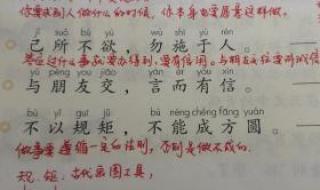 你要求别人做什么的时候，你本身也要愿意这样做。
jǐ suǒ bú yù wù shī yú rén
己所不欲，勿施于人。
答应过什么事就要办得到，要有信用。与朋友交要讲诚信
yǔ péng yǒu jiāo yán ér yǒu xìn
与朋友交，言而有信。
bù yǐ guī jǔ bù néng chéng fāng yuán
不以规矩，不能成方圆。
做事要遵循一定的法则，否则是做不成的。
规、矩：古代画图工具，